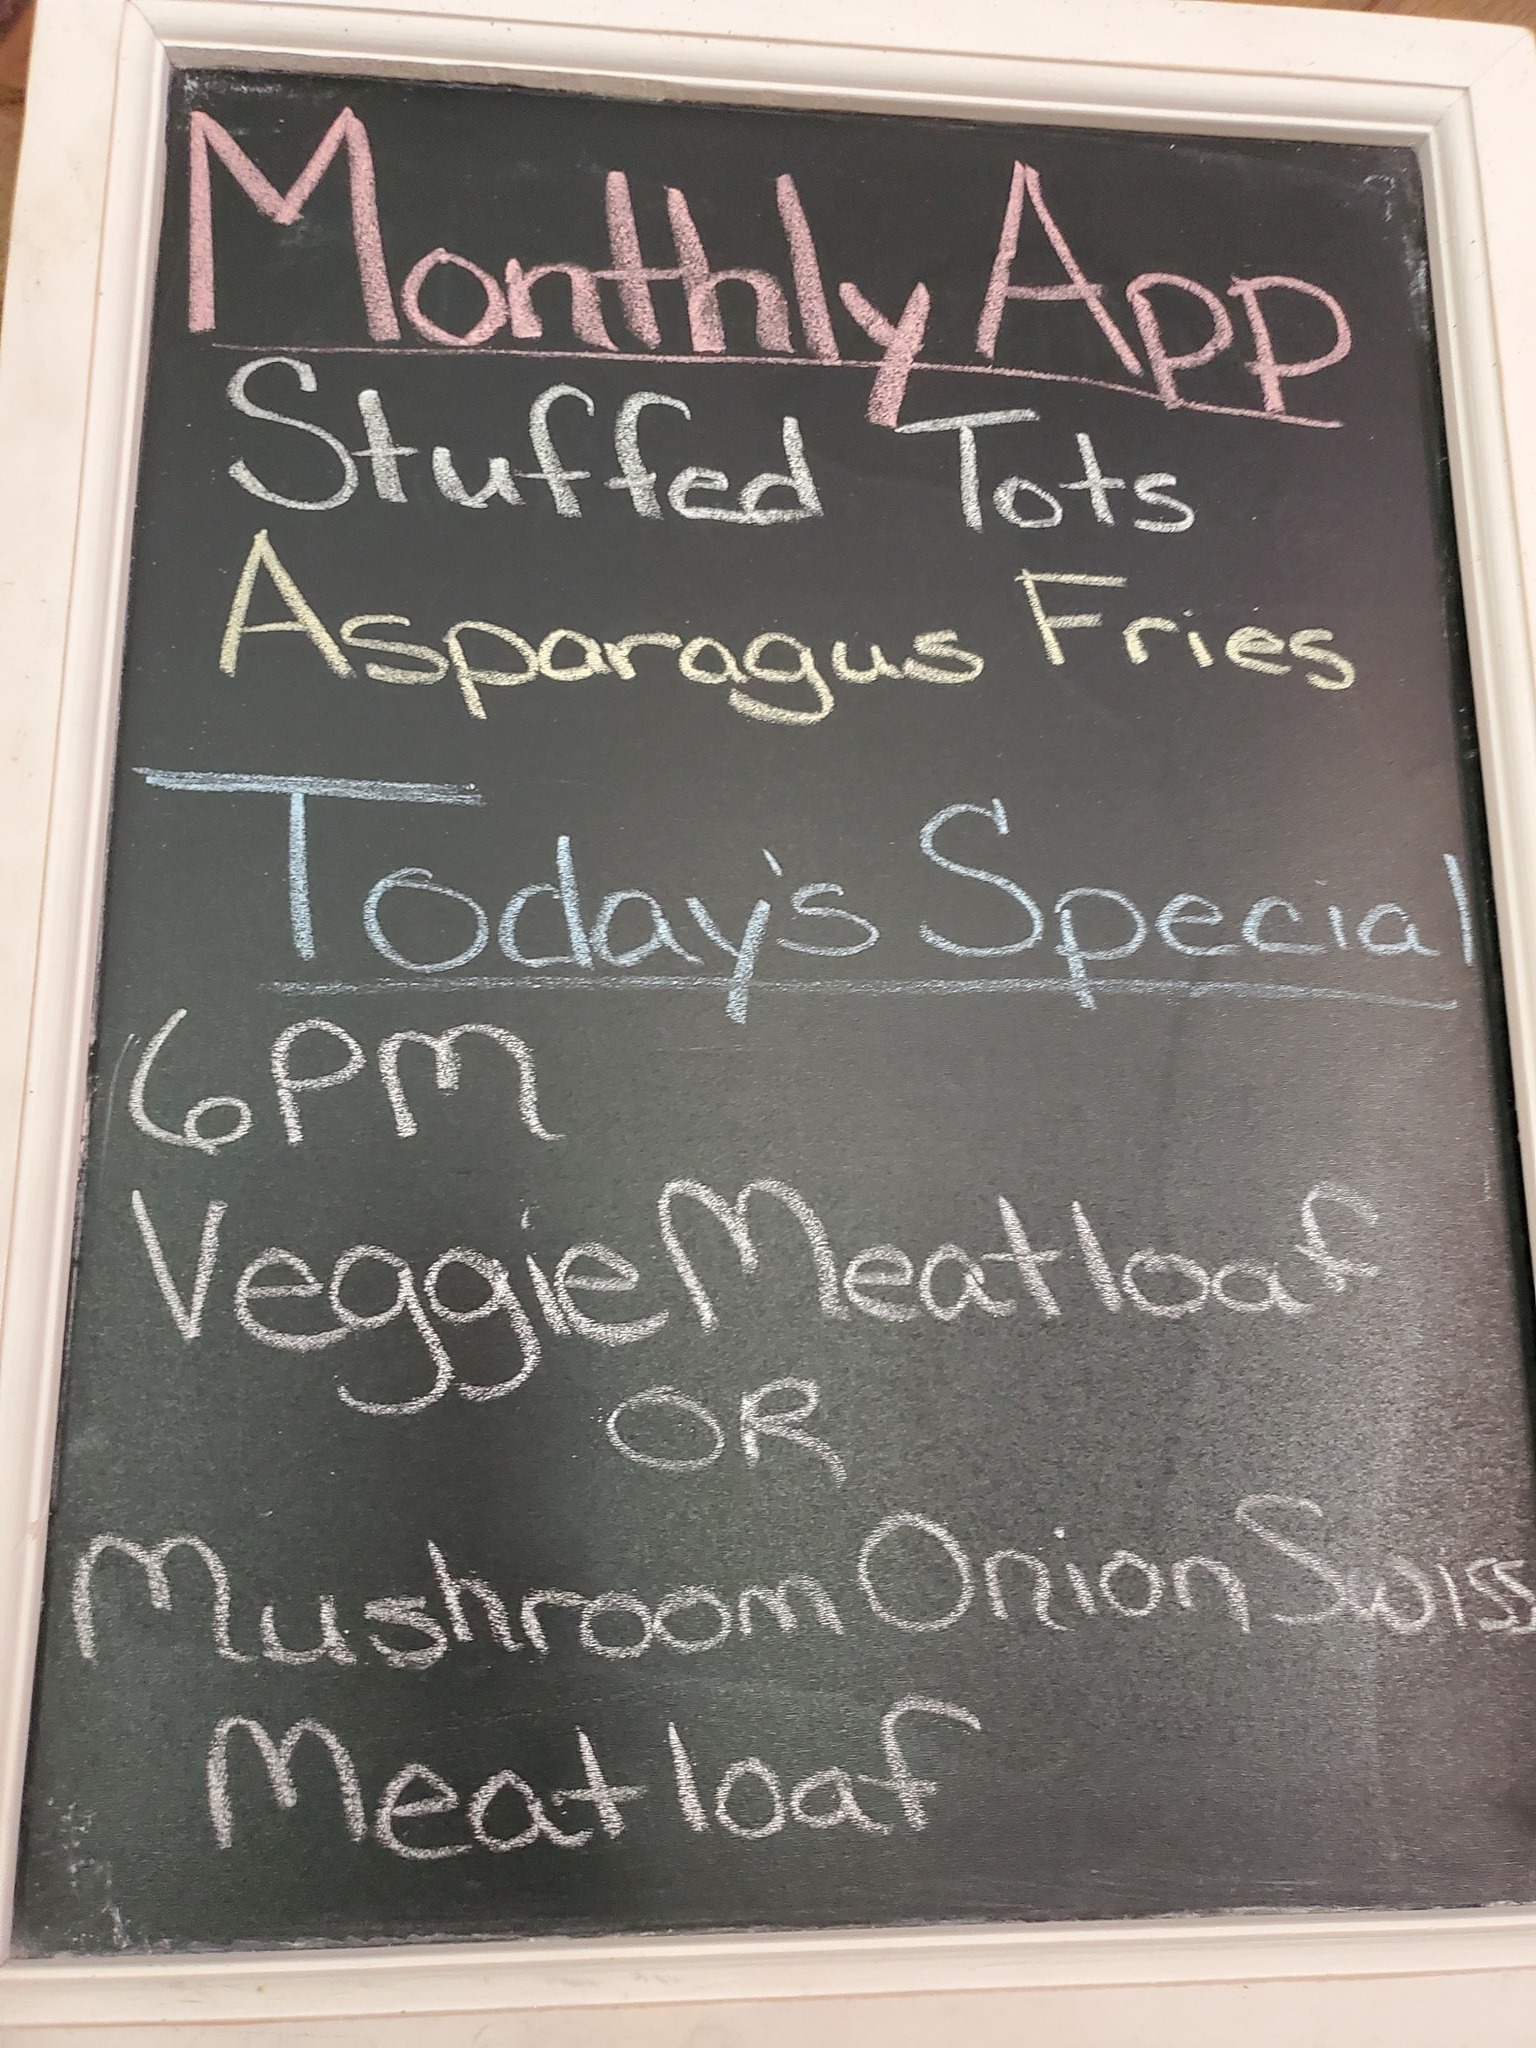 Monthly App
Stuffed Tots
Asparagus Fries
Today's Special
6PM
Veggie Meatloaf
OR
Mushroom Onion Swiss
Meatloaf